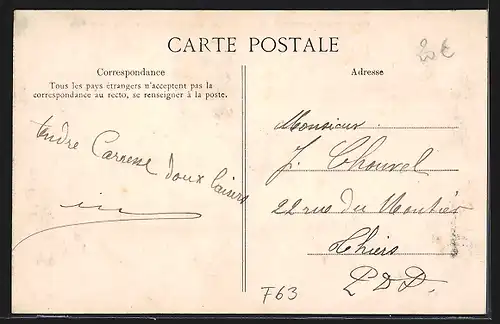 CARTE POSTALE
20€
Correspondance
Tous les pays étrangers n'acceptent pas la
correspondance au recto, se renseigner à la poste.
Adresse
tendre Caresse doux baisers
Monsieur
J. Chouvel
22 rue du Moutier
Thiers
P D D.
F63